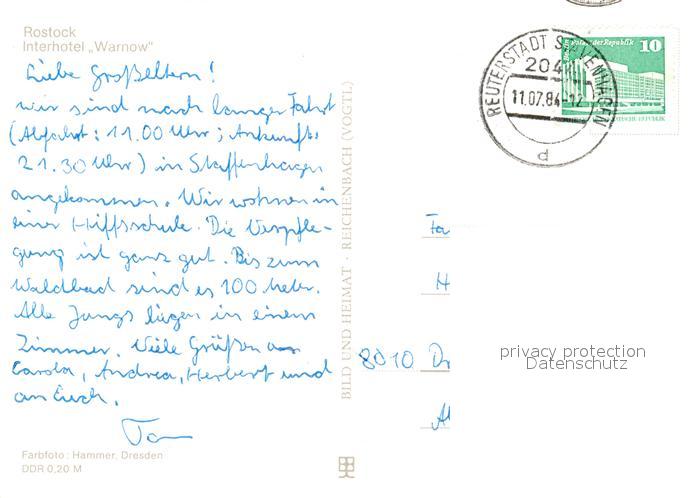 Rostock
Interhotel „Warnow"
Liebe Großeltern!
wir sind nach langer Fahrt
(Abfahrt: 11.00 Uhr; Ankunft:
21.30 Uhr) in Staffenhagen
angekommen. Wir wohnen in
einer Hilfsschule. Die Verpfle-
gung ist ganz gut. Bis zum
Waldbad sind es 100 Meter.
Alle Jungs liegen in einem
Zimmer. Viele Grüßen an
Carola, Andrea, Herbert und
an Euch.
Farbfoto: Hammer, Dresden
DDR 0,20 M
BILD UND HEIMAT · REICHENBACH (VOGTL)
REUTERSTADT STAVENHAGEN
204
11.07.84-12
d
Palast der Republik 10
Fa
H
8010 Dr
privacy protection
Datenschutz